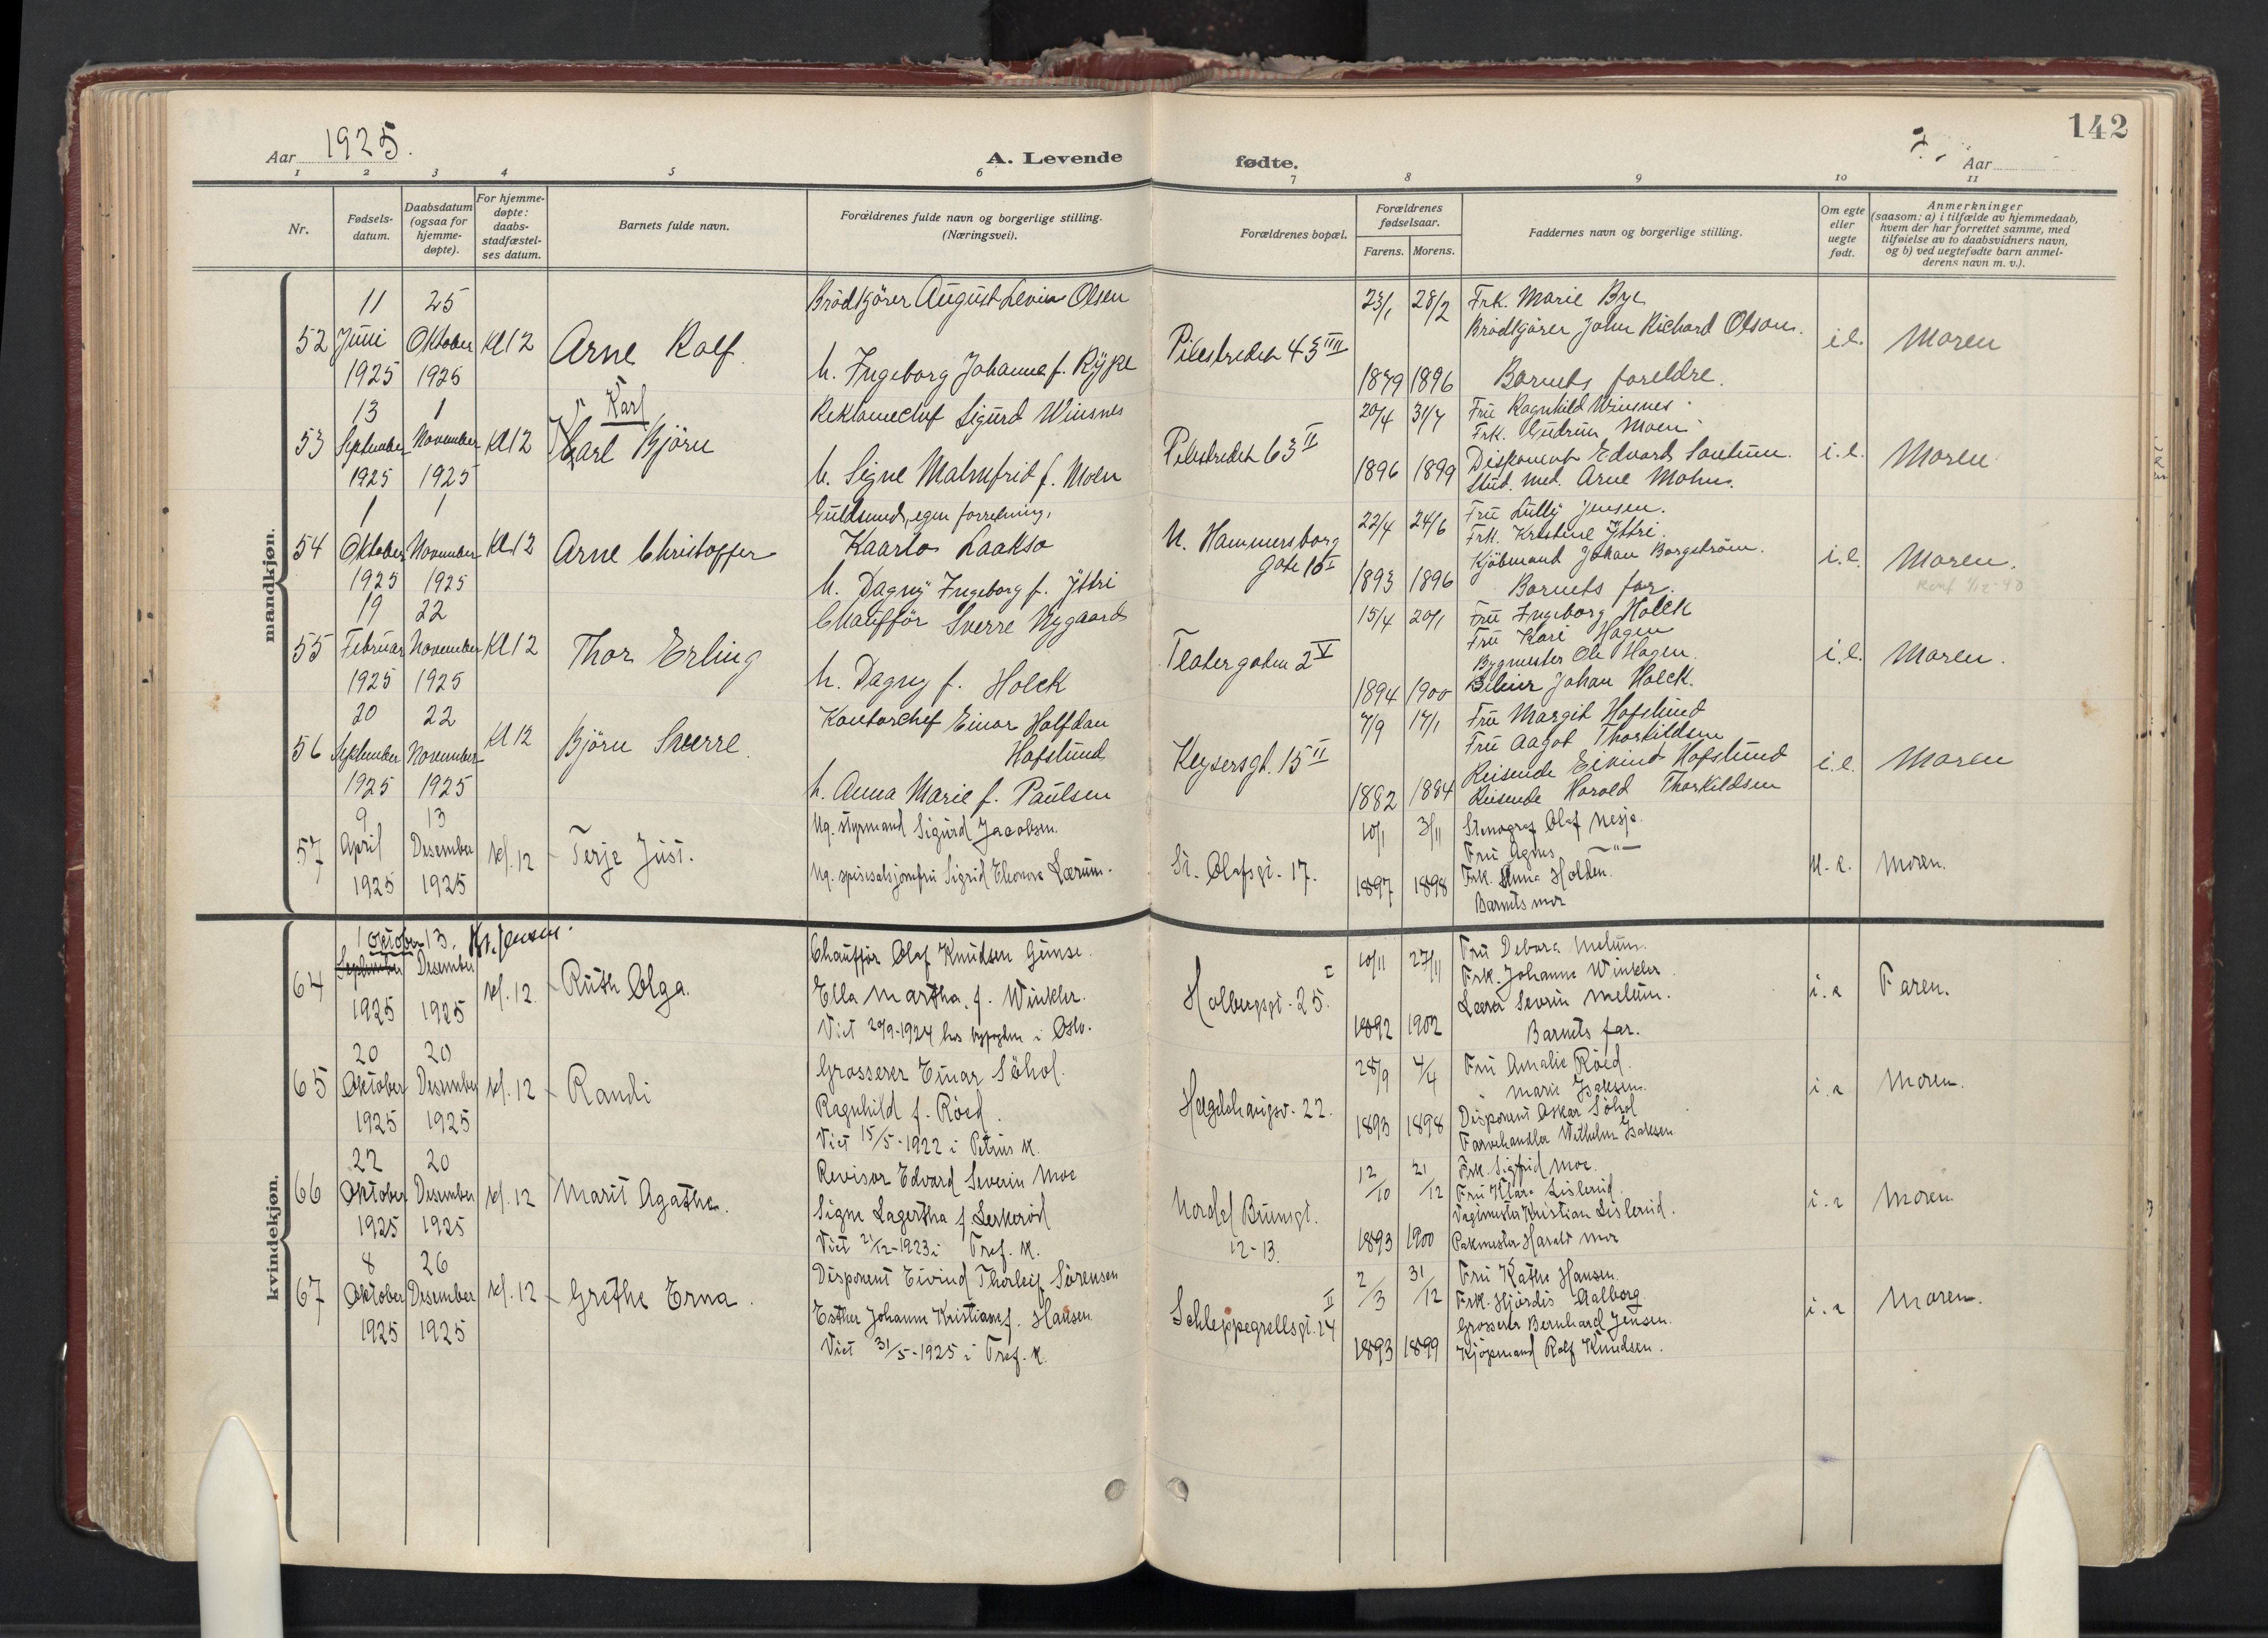 142
Aar 1925.
A. Levende fødte.
Aar
1 2 3 4 5 6 7 8 9 10 11
Nr.
Fødsels-datum.
Daabsdatum (ogsaa for hjemme-døpte).
For hjemme-døpte: daabs-stadfæstel-ses datum.
Barnets fulde navn.
Forældrenes fulde navn og borgerlige stilling. (Næringsvei).
Forældrenes bopæl.
Forældrenes fødselsaar.
Farens. Morens.
Faddernes navn og borgerlige stilling.
Om egte eller uegte født.
Anmerkninger
(saasom: a) i tilfælde av hjemmedaab, hvem der har forrettet samme, med tilføielse av to daabsvidners navn, og b) ved uegtefødte barn anmel-derens navn m. v.).
mandkjøn.
52
11 Juni 1925
25 Oktober 1925
Kl 12
Arne Rolf
Brödkjörer August Levin Olsen
h. Ingeborg Johanne f.
Pilestredet 43 IIII
23/1 1879
28/2 1896
Frk. Marie Bye
Brödkjörer John Richard Olson.
Barnets foreldre.
i.e.
Moren
53
13 September 1925
1 November 1925
Kl 12
Karl
Carl Björn
Reklamechef Sigurd Winsnes
h. Signe Malmfrid f. Moen
Pilestredet 63 II
20/4 1896
31/7 1899
Frü Ragnhild Winsnes
Frk. Gudrun Moen
Disponent Edvard
Stud. med. Arne Mohn.
i.e.
Moren
54
1 Oktober 1925
1 November 1925
Kl 12
Arne Christoffer
Guldsmed, egen forretning,
Kaarlo Laakso
h. Dagny Ingeborg f. Ystri
N. Hammersborg gate 16 I
22/4 1893
24/6 1896
Frü Lully Jensen.
Frk. Kristine Ystri.
Kjöbmand Johan Borgström.
Barnets far.
i.e.
Moren.
55
19 Februar 1925
22 November 1925
Kl 12
Thor Erling
Chafför Sverre Nygaard
h. Dagny f. Holck
Teatergaten 2 V
15/4 1894
20/1 1900
Frü Ingeborg Holck
Frü Kari Hagen
Bygmester Ole Hagen.
Bileier Johan Holck.
i.e.
Moren.
56
20 September 1925
22 November 1925
Kl 12
Björn Sverre
Kontorchef Einar Halfdan Hafslund
h. Anna Marie f. Paulsen
Keysersgt. 15 II
7/9 1882
17/1 1884
Frü Margit Hafslund
Frü Aagot Thorkildsen
Reisende Eivind Hafslund
Reisende Harald Thorkildsen
i.e.
Moren
57
9 April 1925
13 Desember 1925
kl. 12
Terje Just.
Ug. styrmand Sigurd Jacobsen.
Ug. spisesalsjomfru Sigrid Eleonora Lærum.
St. Olafsgt. 17.
10/1 1897
3/11 1898
Stenograf Olaf Nesje.
Fru Agnes —"—
Frk. Anna Holden.
Barnets mor
u. e.
Moren.
kvindekjøn.
64
1 Oktober
September 1925
13. Desember 1925
kl. 12
Ruth Olga.
Chauffør Olaf Knudsen Gimse.
Ella Martha f. Winkler.
Viet 20/9-1924 hos byfogden i Oslo.
Holbergsgt. 25. I
10/11 1892
27/11 1902
Fru Debora Melum.
Frk. Johanne Winkler.
Lærer Severin Melum.
Barnets far.
i. e
Faren.
65
20 Oktober 1925
20 Desember 1925
kl. 12
Randi
Grosserer Einar Söhol.
Ragnhild f. Röed.
Viet 15/5-1922 i Petrus k.
Hegdehaugsv. 22.
28/9 1893
4/4 1898
Fru Amalie Röed.
" Marie Isaksen.
Disponent Oskar Söhol
Farvehandler Wilhelm Isaksen
i. e
Moren.
66
22 Oktober 1925
20 Desember 1925
kl. 12
Marit Agathe.
Revisor Edvard Severin Moe
Signe Lagertha f. Leskeröd
Viet 21/12-1923 i Tref. k.
Nordal Brunsgt. 12-13.
12/10 1893
21/12 1900
Frk. Sigfrid Moe.
Fru Klara Lislerud.
Kristian Lislerud.
Pakmester Harald Moe
i. e
Moren.
67
8 Oktober 1925
26 Desember 1925
kl. 12
Grethe Erna.
Disponent Eivind Thorleif Sörensen
Esther Johanne Kristiane f. Hansen.
Viet 31/5-1925 i Tref. k.
Schleppegrellsgt. 14 II
2/3 1893
31/12 1899
Fru Käthe Hansen.
Frk. Hjördis Aalborg.
Grosserer Bernhard Jensen.
Kjøpmand Rolf Knudsen.
i. e
Moren.